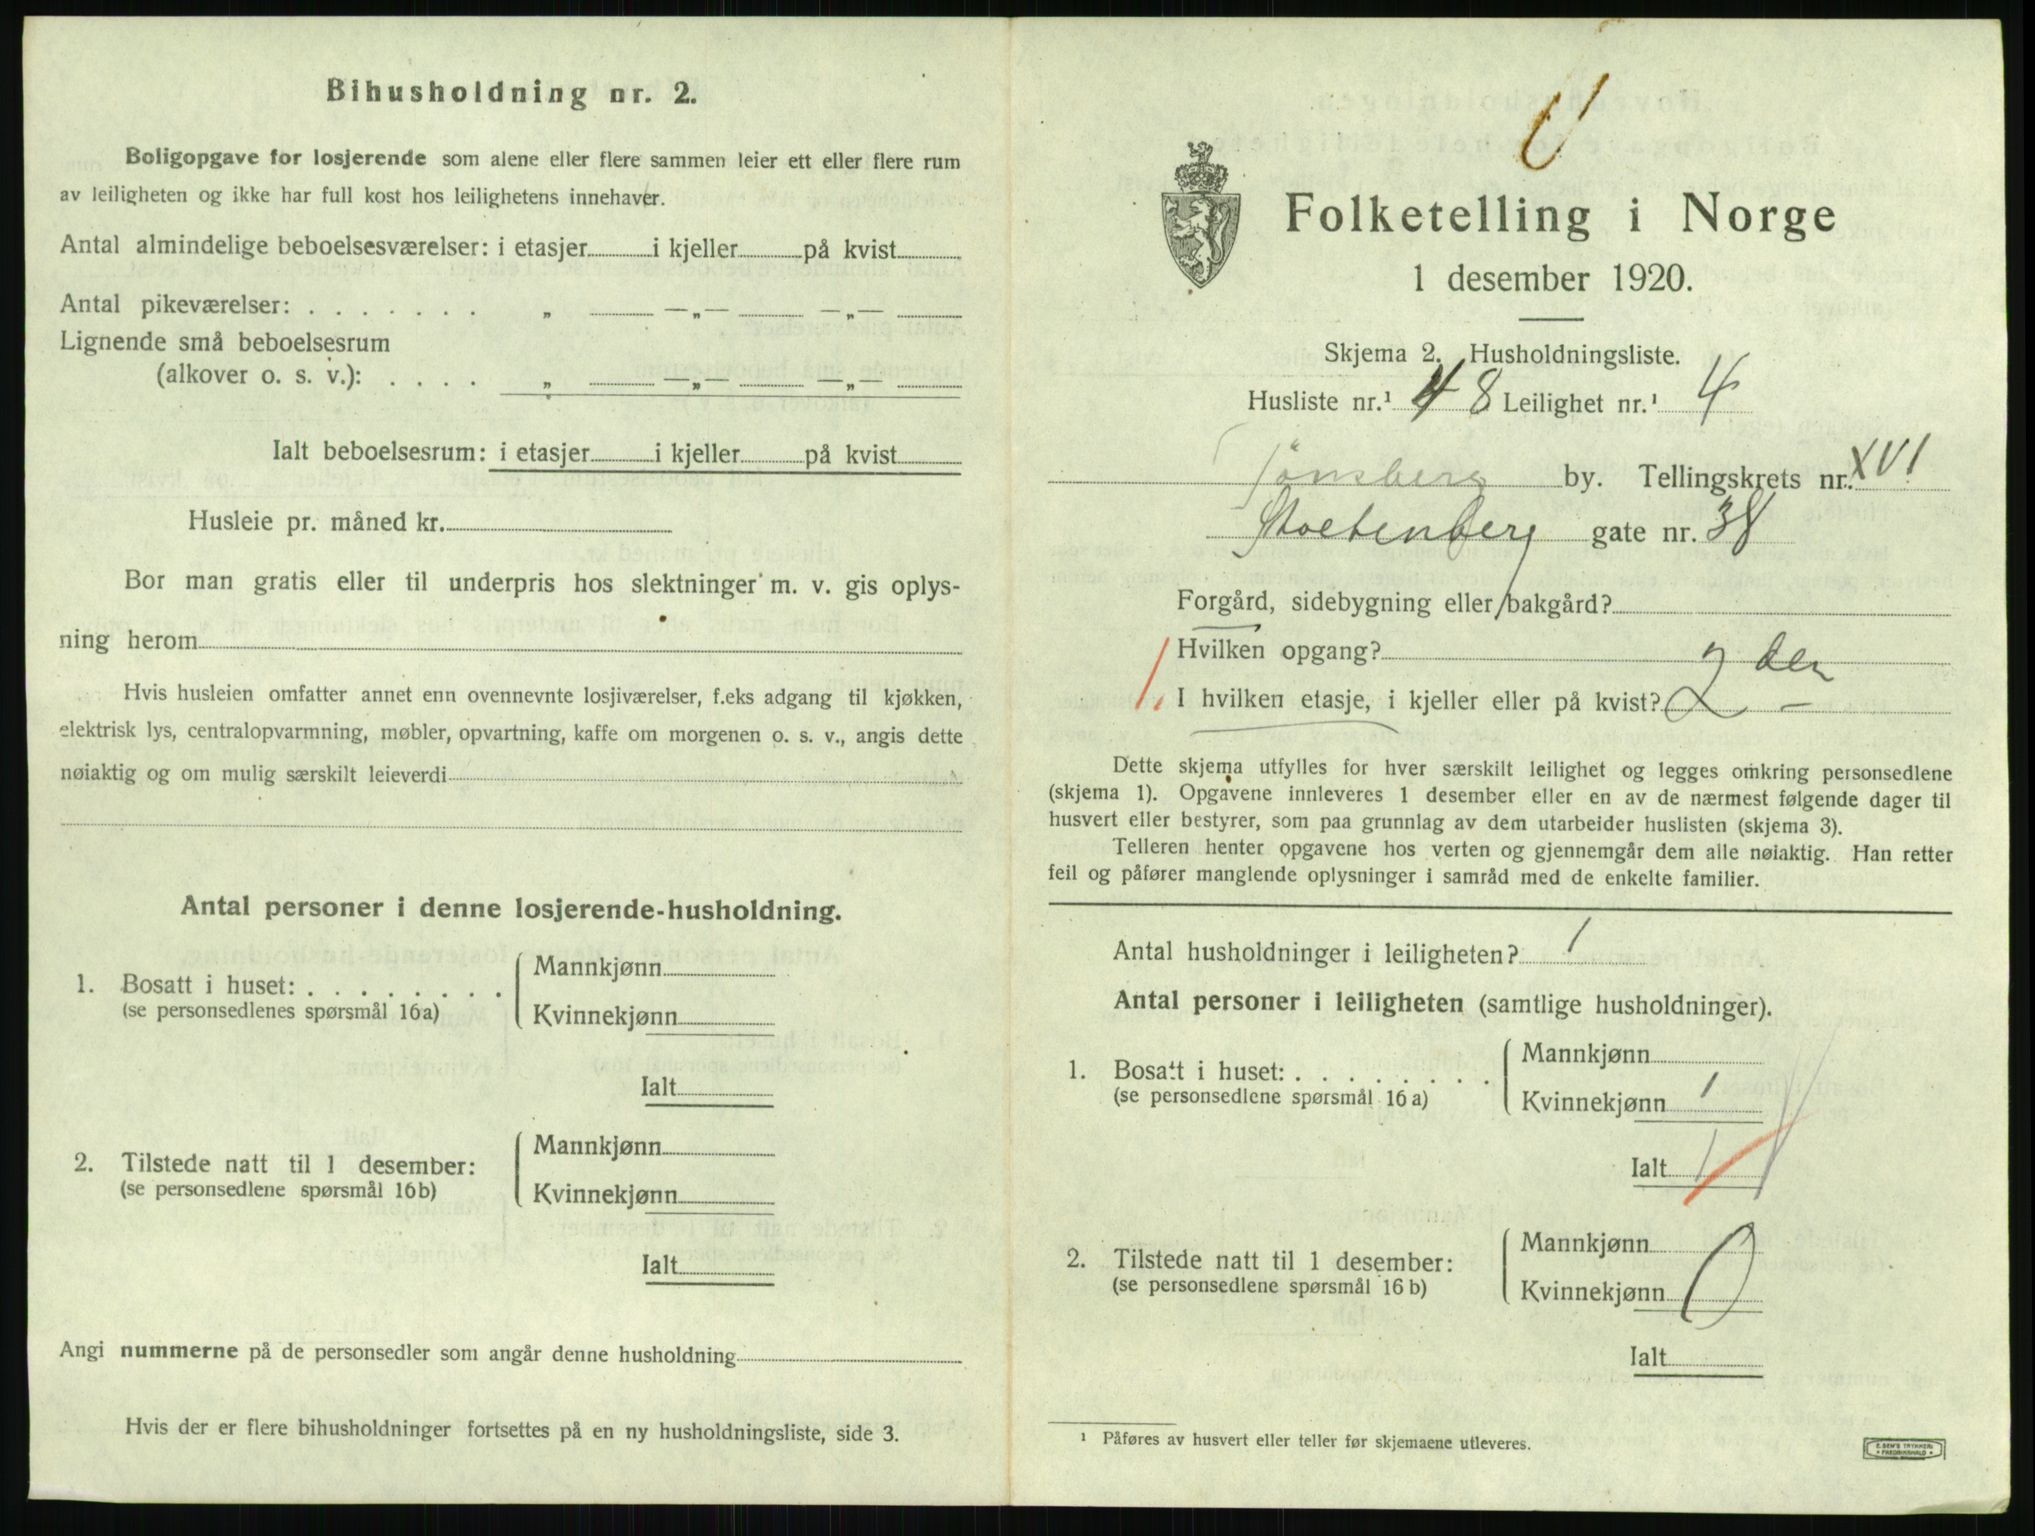 Bihusholdning nr. 2.
Boligopgave for losjerende som alene eller flere sammen leier ett eller flere rum
av leiligheten og ikke har full kost hos leilighetens innehaver.
Antal almindelige beboelsesværelser: i etasjer i kjeller på kvist
Antal pikeværelser: . . . . . . . „ —„— —„—
Lignende små beboelsesrum
(alkover o. s. v.): . . . . „ —„— —„—
Ialt beboelsesrum: i etasjer i kjeller på kvist
Husleie pr. måned kr.
Bor man gratis eller til underpris hos slektninger m. v. gis oplys-
ning herom
Hvis husleien omfatter annet enn ovennevnte losjiværelser, f.eks adgang til kjøkken,
elektrisk lys, centralopvarmning, møbler, opvartning, kaffe om morgenen o. s. v., angis dette
nøiaktig og om mulig særskilt leieverdi
Antal personer i denne losjerende-husholdning.
1. Bosatt i huset: . . . . . . . . Mannkjønn
(se personsedlenes spørsmål 16a) Kvinnekjønn
Ialt
2. Tilstede natt til 1 desember: Mannkjønn
(se personsedlene spørsmål 16b) Kvinnekjønn
Ialt
Angi nummerne på de personsedler som angår denne husholdning
Hvis der er flere bihusholdninger fortsettes på en ny husholdningsliste, side 3.
Folketelling i Norge
1 desember 1920.
Skjema 2. Husholdningsliste.
Husliste nr.¹ 48 Leilighet nr.¹ 4
Tønsberg by. Tellingskrets nr. XVI
Stoltenberg gate nr. 38
Forgård, sidebygning eller bakgård?
Hvilken opgang? 2 den
I hvilken etasje, i kjeller eller på kvist? 2 –
Dette skjema utfylles for hver særskilt leilighet og legges omkring personsedlene
(skjema 1). Opgavene innleveres 1 desember eller en av de nærmest følgende dager til
husvert eller bestyrer, som paa grunnlag av dem utarbeider huslisten (skjema 3).
Telleren henter opgavene hos verten og gjennemgår dem alle nøiaktig. Han retter
feil og påfører manglende oplysninger i samråd med de enkelte familier.
Antal husholdninger i leiligheten? 1
Antal personer i leiligheten (samtlige husholdninger).
1. Bosatt i huset: . . . . . . . . Mannkjønn
(se personsedlene spørsmål 16a) Kvinnekjønn 1
Ialt 1
2. Tilstede natt til 1 desember: Mannkjønn
(se personsedlene spørsmål 16b) Kvinnekjønn 0
Ialt
¹ Påføres av husvert eller teller før skjemaene utleveres.